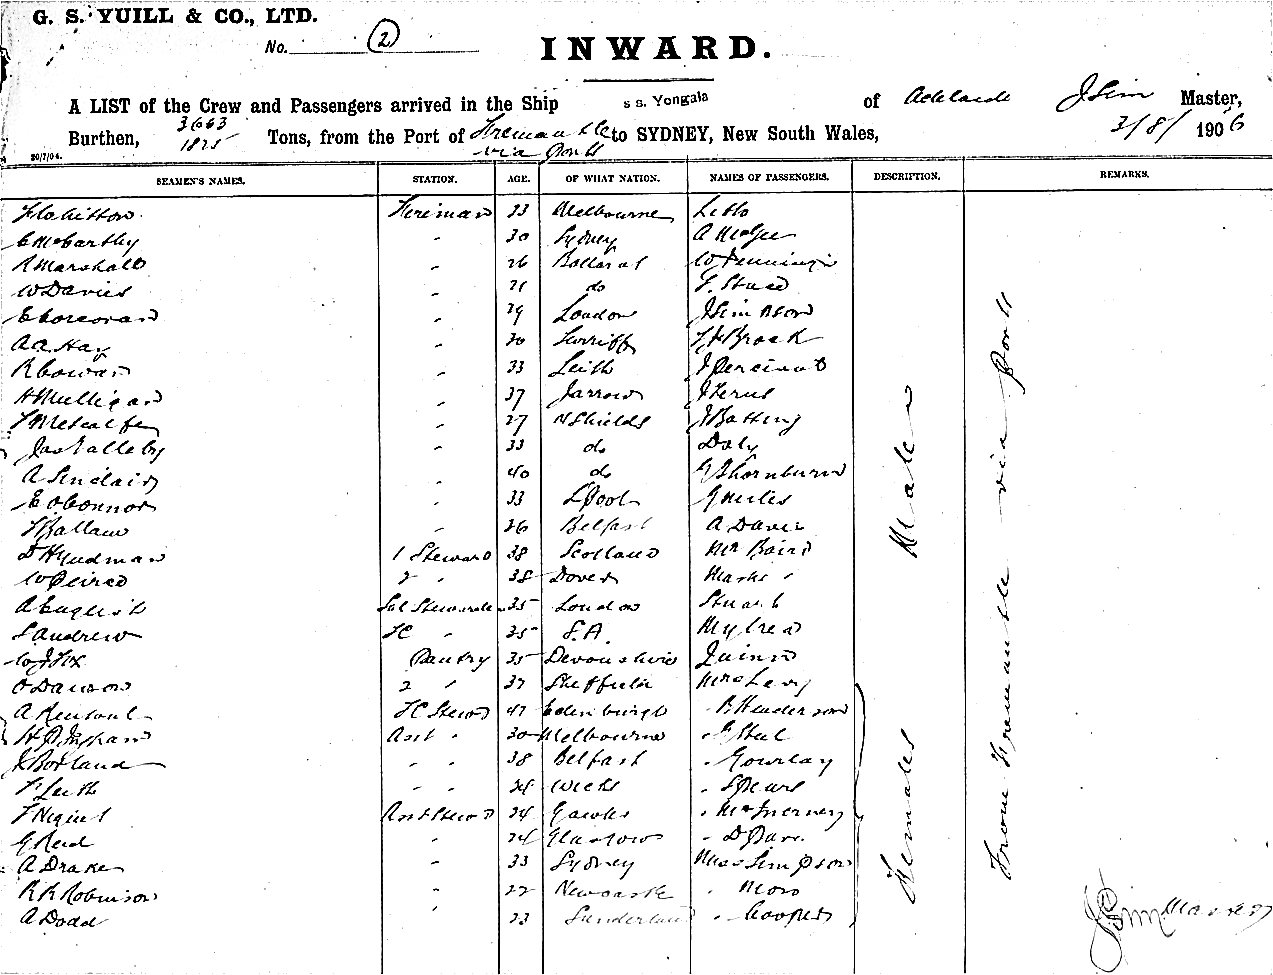 G. S. YUILL & CO., LTD.
No. 2
INWARD.
A LIST of the Crew and Passengers arrived in the Ship s s. Yongala of Adelaide J Sim Master,
Burthen, 3663 1825 Tons, from the Port of Fremantle via ports to SYDNEY, New South Wales, 3/8/ 1906
20/7/04.
SEAMEN'S NAMES. STATION. AGE. OF WHAT NATION. NAMES OF PASSENGERS. DESCRIPTION. REMARKS.
Fireman 33 Melbourne
C McCarthy " 30 Sydney A McGee
R Marshall " 26 Ballarat
W Davies " 21 do
E Corcoran " 29 London J Simpson
A A Hay " 30 Turriff Brook
R Cowan " 33 Leith J Percival
H Mulligan " 37 Jarrow
T Metcalfe " 27 N Shields J Batting
Jas Galleby " 33 do Daly
A Sinclair " 40 do Thornburn
E O'Connor " 33 L'Pool G Miles
T Ballam " 26 Belfast A Davis
D Hyndman 1 Steward 38 Scotland Mr Baird
W Peirce 2 " 38 Dover Marks
A English Sal Steward 35 London Stuart
S Andrew " 35 S. A. Mylrea
W J Fox Pantry 35 Devonshire Quinn
O Dawson 2 " 37 Sheffield Mrs Levy
A Rensoul FC Stewd 47 Edenburgh " Henderson
H P Ingham Asst " 30 Melbourne " Steel
J Borland " " 38 Belfast " Gourlay
P Leith " " 24 Wick " Spears
Asst Stewd 24 " McInerney
G Reid " 24 Glasgow "
A Drake " 33 Sydney Miss Simpson
R R Robinson " 22 Newcastle "
A Dodd " 23 Sunderland " Cooper
Males
Females
From Fremantle via ports
J Sim Master